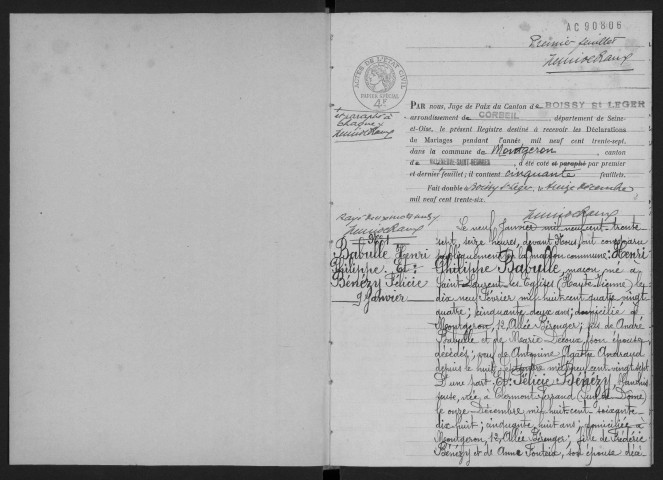 AC90806
Premier feuillet
ACTES DE L'ETAT CIVIL
PAPIER SPÉCIAL
4F
PAR nous, Juge de Paix du Canton de BOISSY St LEGER
arrondissement de CORBEIL, département de Seine-
et-Oise, le présent Registre destiné à recevoir les Déclarations
de Mariages pendant l'année mil neuf cent trente-sept,
dans la commune de Montgeron, canton
de VILLENEUVE-SAINT-GEORGES, a été coté et paraphé par premier
et dernier feuillet; il contient cinquante feuillets.
Fait double à Boissy St Léger, le décembre
mil neuf cent trente-six.
N° 1
Babulle Henri
Philippe Et
Bénézy Félicie
9 Janvier
Le neuf Janvier mil neuf cent trente
sept, seize heures, devant Nous ont comparu
publiquement en la maison commune: Henri
Philippe Babulle, maçon, né à
Saint Laurent les Eglises (Haute Vienne) le
dix neuf Février mil huit cent quatre vingt
quatre; cinquante deux ans; domicilié à
Montgeron, 12, Allée Béranger; fils de André
Babulle et de Marie Decoux, son épouse,
décédés; veuf de Antonine Agathe Andraud
depuis le huit mil neuf cent vingt sept
D'une part. Et: Félicie Bénézy, blanchis
seuse, née à Clermont Ferrand (Puy de Dôme)
le onze Décembre mil huit cent soixante
dix huit; cinquante huit ans; domiciliée à
Montgeron, 12, Allée Béranger; fille de Frédéric
Bénézy et de Anne son épouse décé